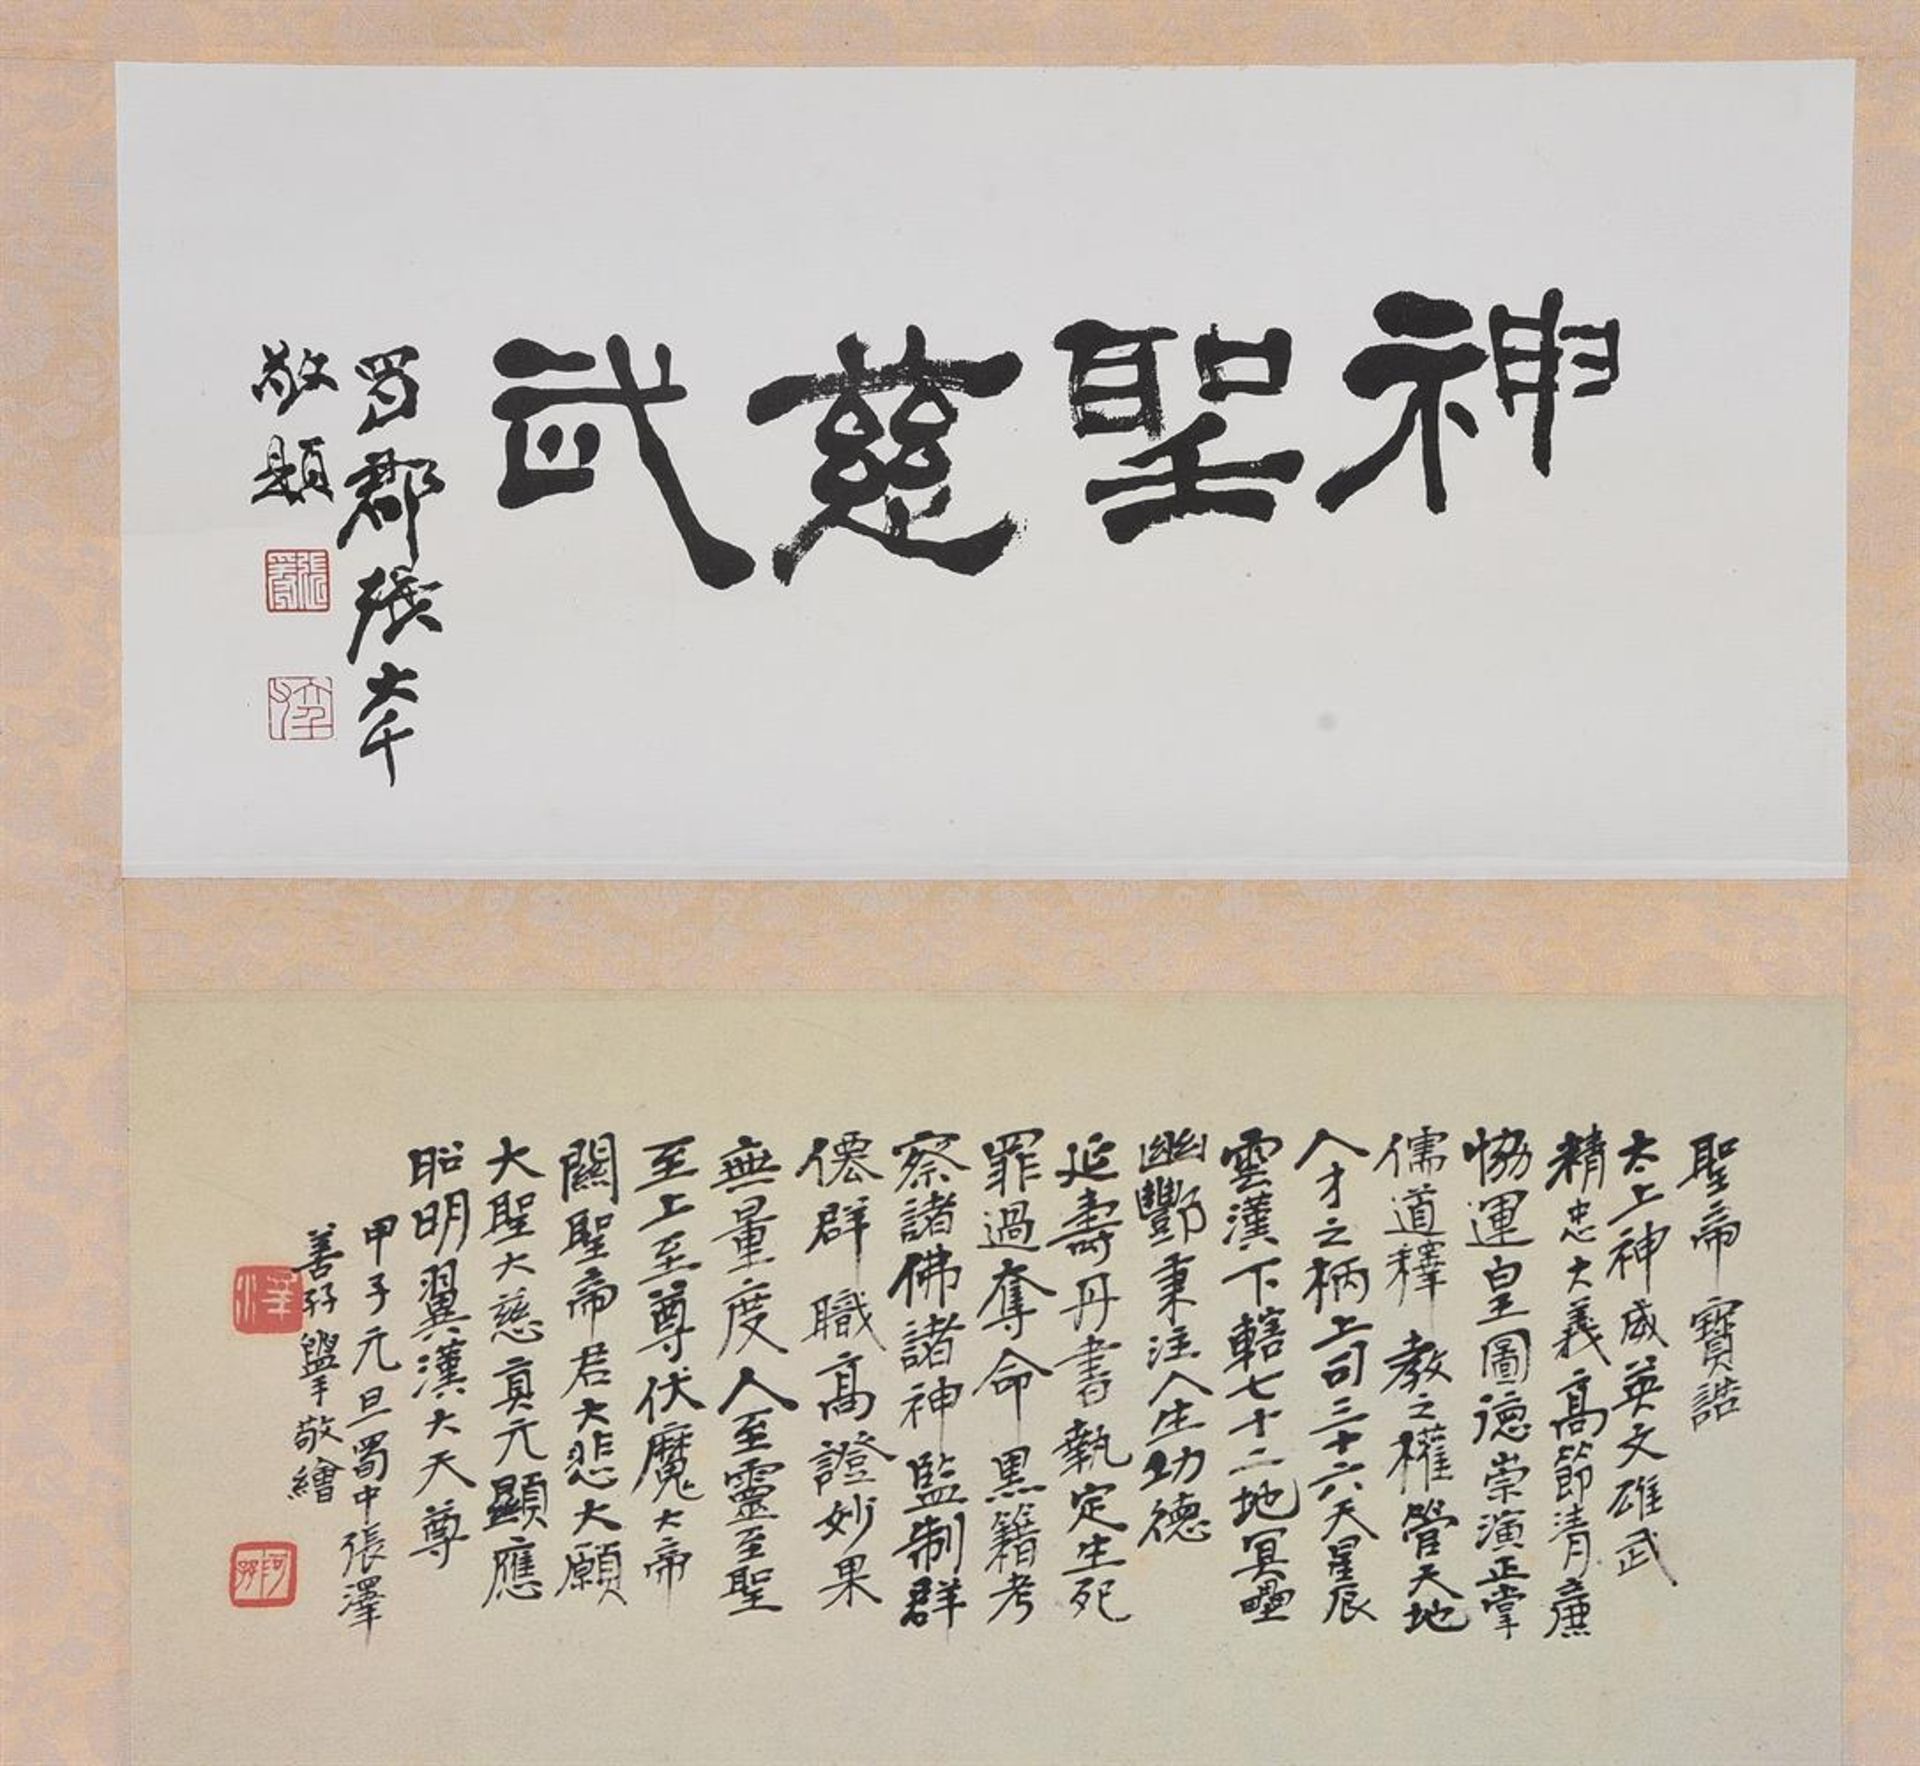 神聖慈武
蜀郡張大千
敬題
聖帝寶誥
太上神威英文雄武
精忠大義高節清廉
協運皇圖德崇演正掌
儒道釋教之權管天地
人才之柄上司三十六天星辰
雲漢下轄七十二地冥壘
幽酆秉注人生功德
延壽丹書執定生死
罪過奪命黑籍考
察諸佛諸神監制群
僊群職高證妙果
無量度人至靈至聖
至上至尊伏魔大帝
關聖帝君大悲大願
大聖大慈真元顯應
昭明翼漢大天尊
甲子元旦蜀中張澤
善孖盥手敬繪